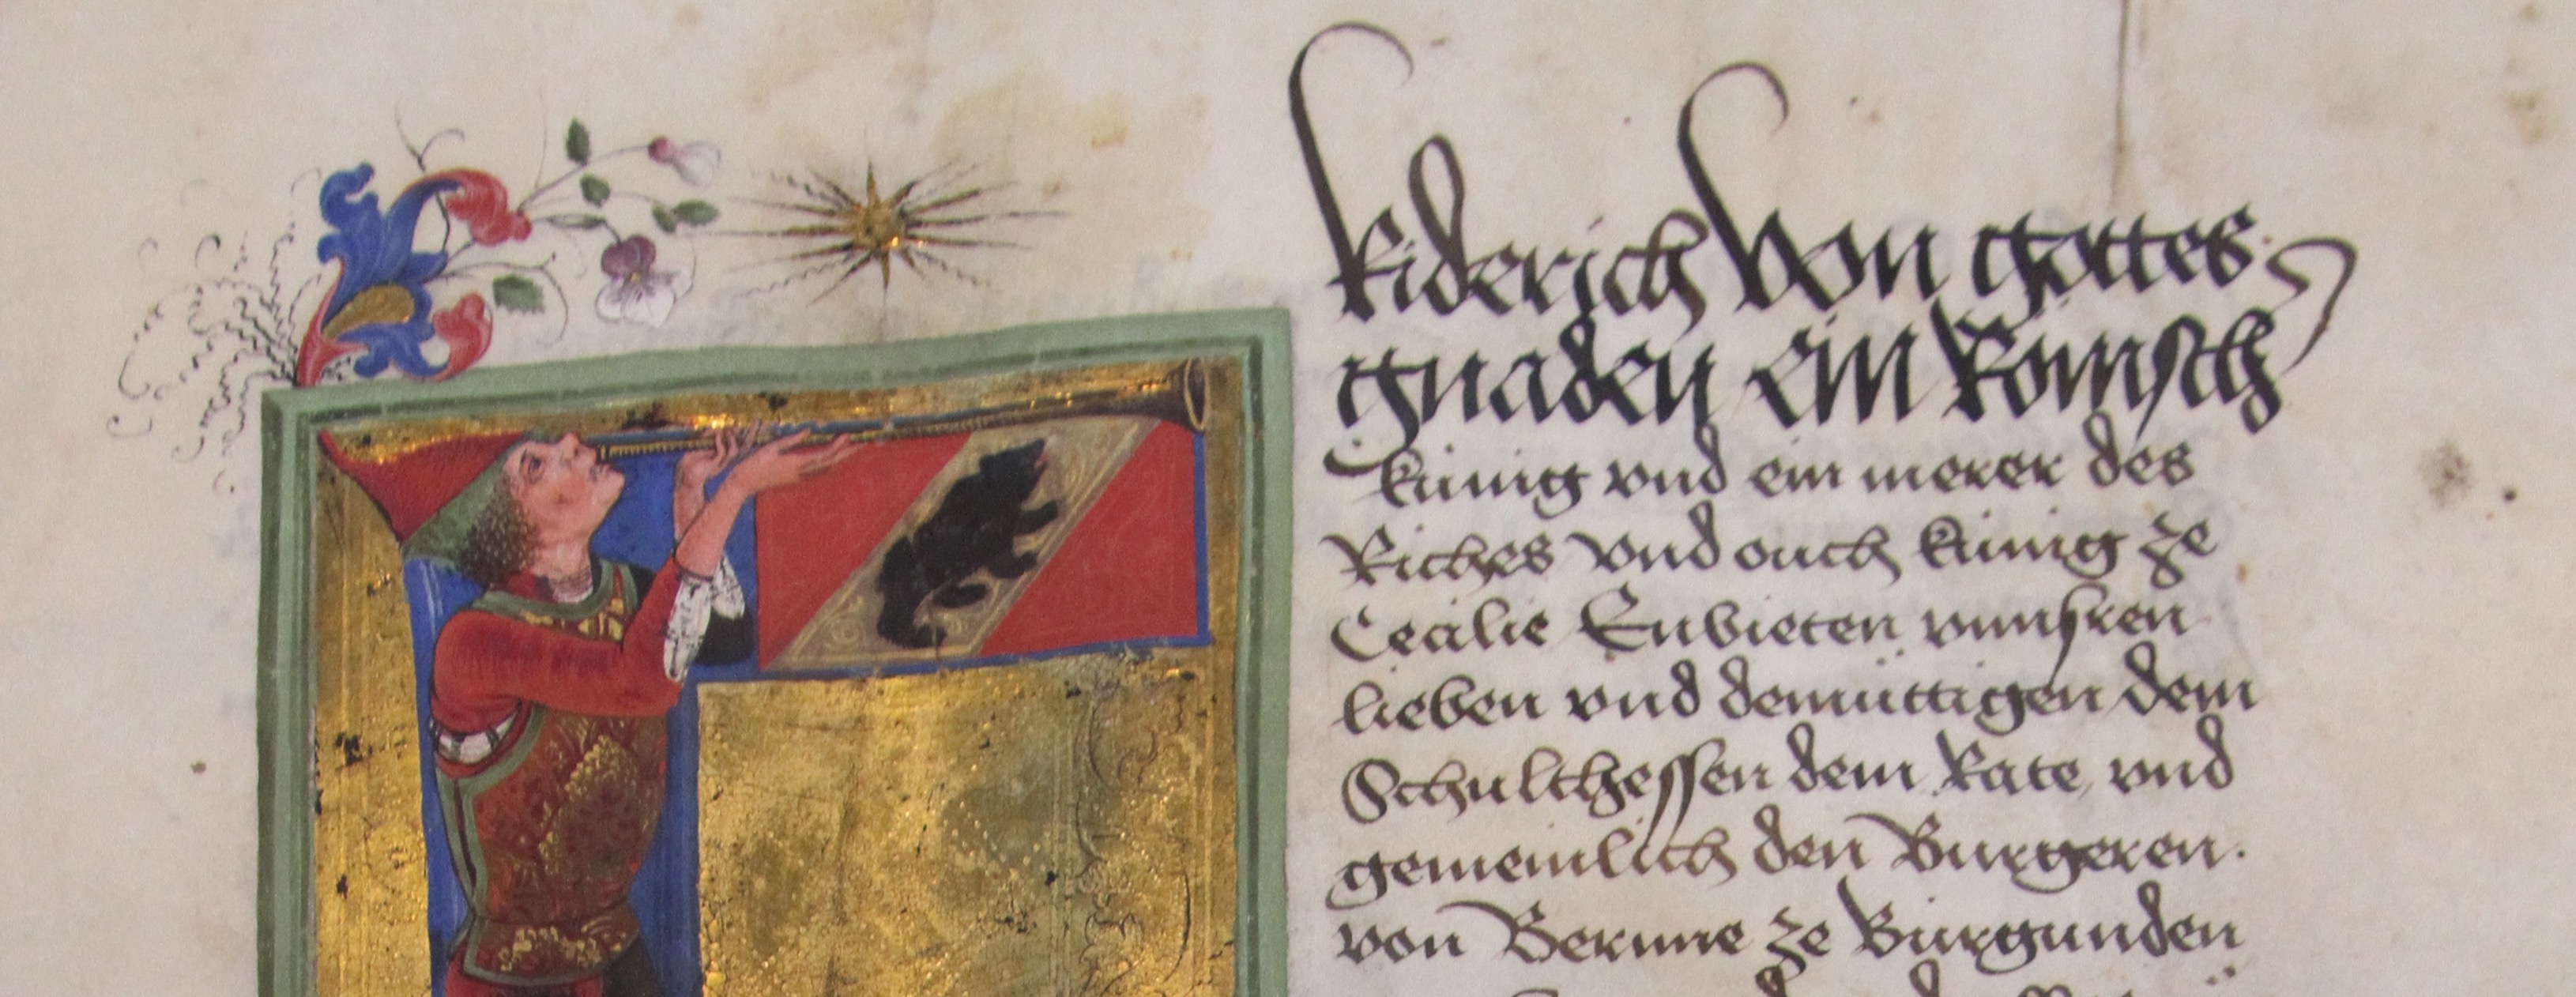 Riderich von gottes
gnaden ein Romsch
künig vnd ein merer des
Riches vnd ouch künig ze
Cecilie Enbieten vnnsren
lieben vnd demüttigen dem
Schulthessen dem Rate, vnd
gemeinlich den Burgeren.
von Bernne ze Burgunden